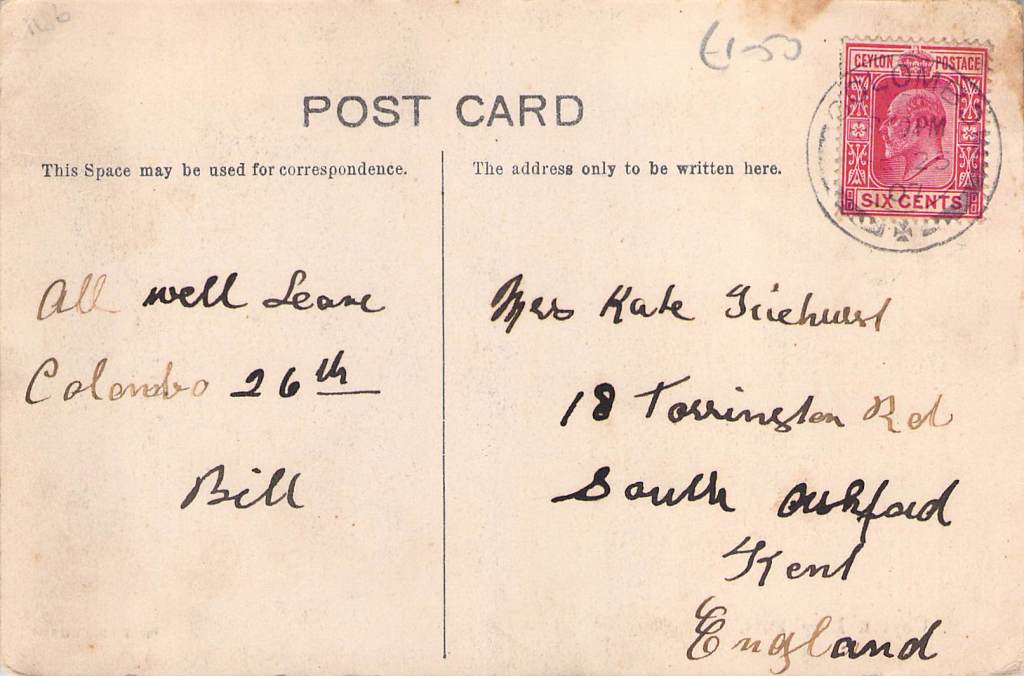 £1-50
POST CARD
CEYLON POSTAGE
SIX CENTS
COLOMBO
PM
This Space may be used for correspondence.
The address only to be written here.
All well Leave
Colombo 26th
Bill
Mrs Kate
18 Torrington Rd
South Ashford
Kent
England